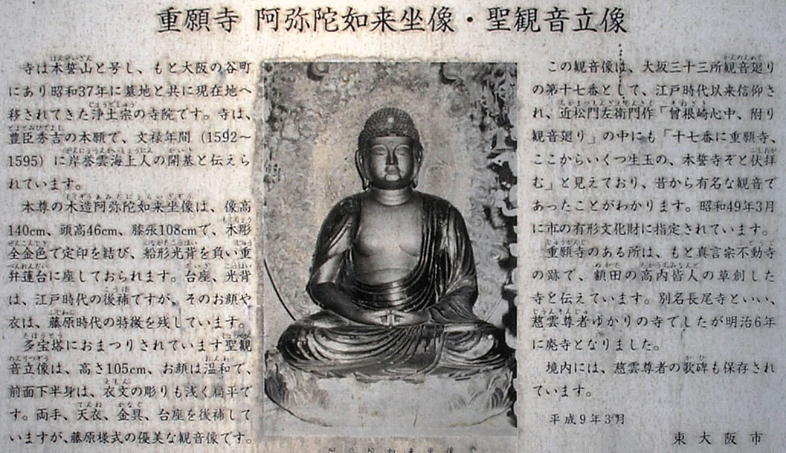 重願寺 阿弥陀如来坐像・聖観音立像
寺は本誓山と号し、もと大阪の谷町
にあり昭和37年に墓地と共に現在地へ
移されてきた浄土宗の寺院です。寺は、
豊臣秀吉の本願で、文禄年間（1592～
1595）に岸誉雲海上人の開基と伝えら
れています。
本尊の木造阿弥陀如来坐像は、像高
140cm、頭高46cm、膝張108cmで、木彫
全金色で定印を結び、船形光背を負い重
弁蓮台に座しておられます。台座、光背
は、江戸時代の後補ですが、そのお顔や
衣は、藤原時代の特徴を残しています。
多宝塔におまつりされています聖観
音立像は、高さ105cm、お顔は温和で、
前面下半身は、衣文の彫りも浅く扁平で
す。両手、天衣、金具、台座を後補して
いますが、藤原様式の優美な観音像です。
阿弥陀如来坐像
この観音像は、大坂三十三所観音廻り
の第十七番として、江戸時代以来信仰さ
れ、近松門左衛門作「曽根崎心中、附り
観音廻り」の中にも「十七番に重願寺、
ここからいくつ生玉の、本誓寺ぞと伏拝
む」と見えており、昔から有名な観音で
あったことがわかります。昭和49年3月
に市の有形文化財に指定されています。
重願寺のある所は、もと真言宗不動寺
の跡で、額田の高内皆人の草創した
寺と伝えています。別名長尾寺といい、
慈雲尊者ゆかりの寺でしたが明治6年
に廃寺となりました。
境内には、慈雲尊者の歌碑も保存され
ています。
平成9年3月
東大阪市